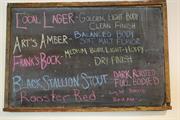 Local Lager - Golden, Light Body
Clean Finish
Art's Amber - Balanced Body
Soft Malt Flavor
Frank's Bock - Medium Body, Light-Hoppy
Dry Finish
Black Stallion Stout - Dark Roasted
Full-Bodied
Rooster Red